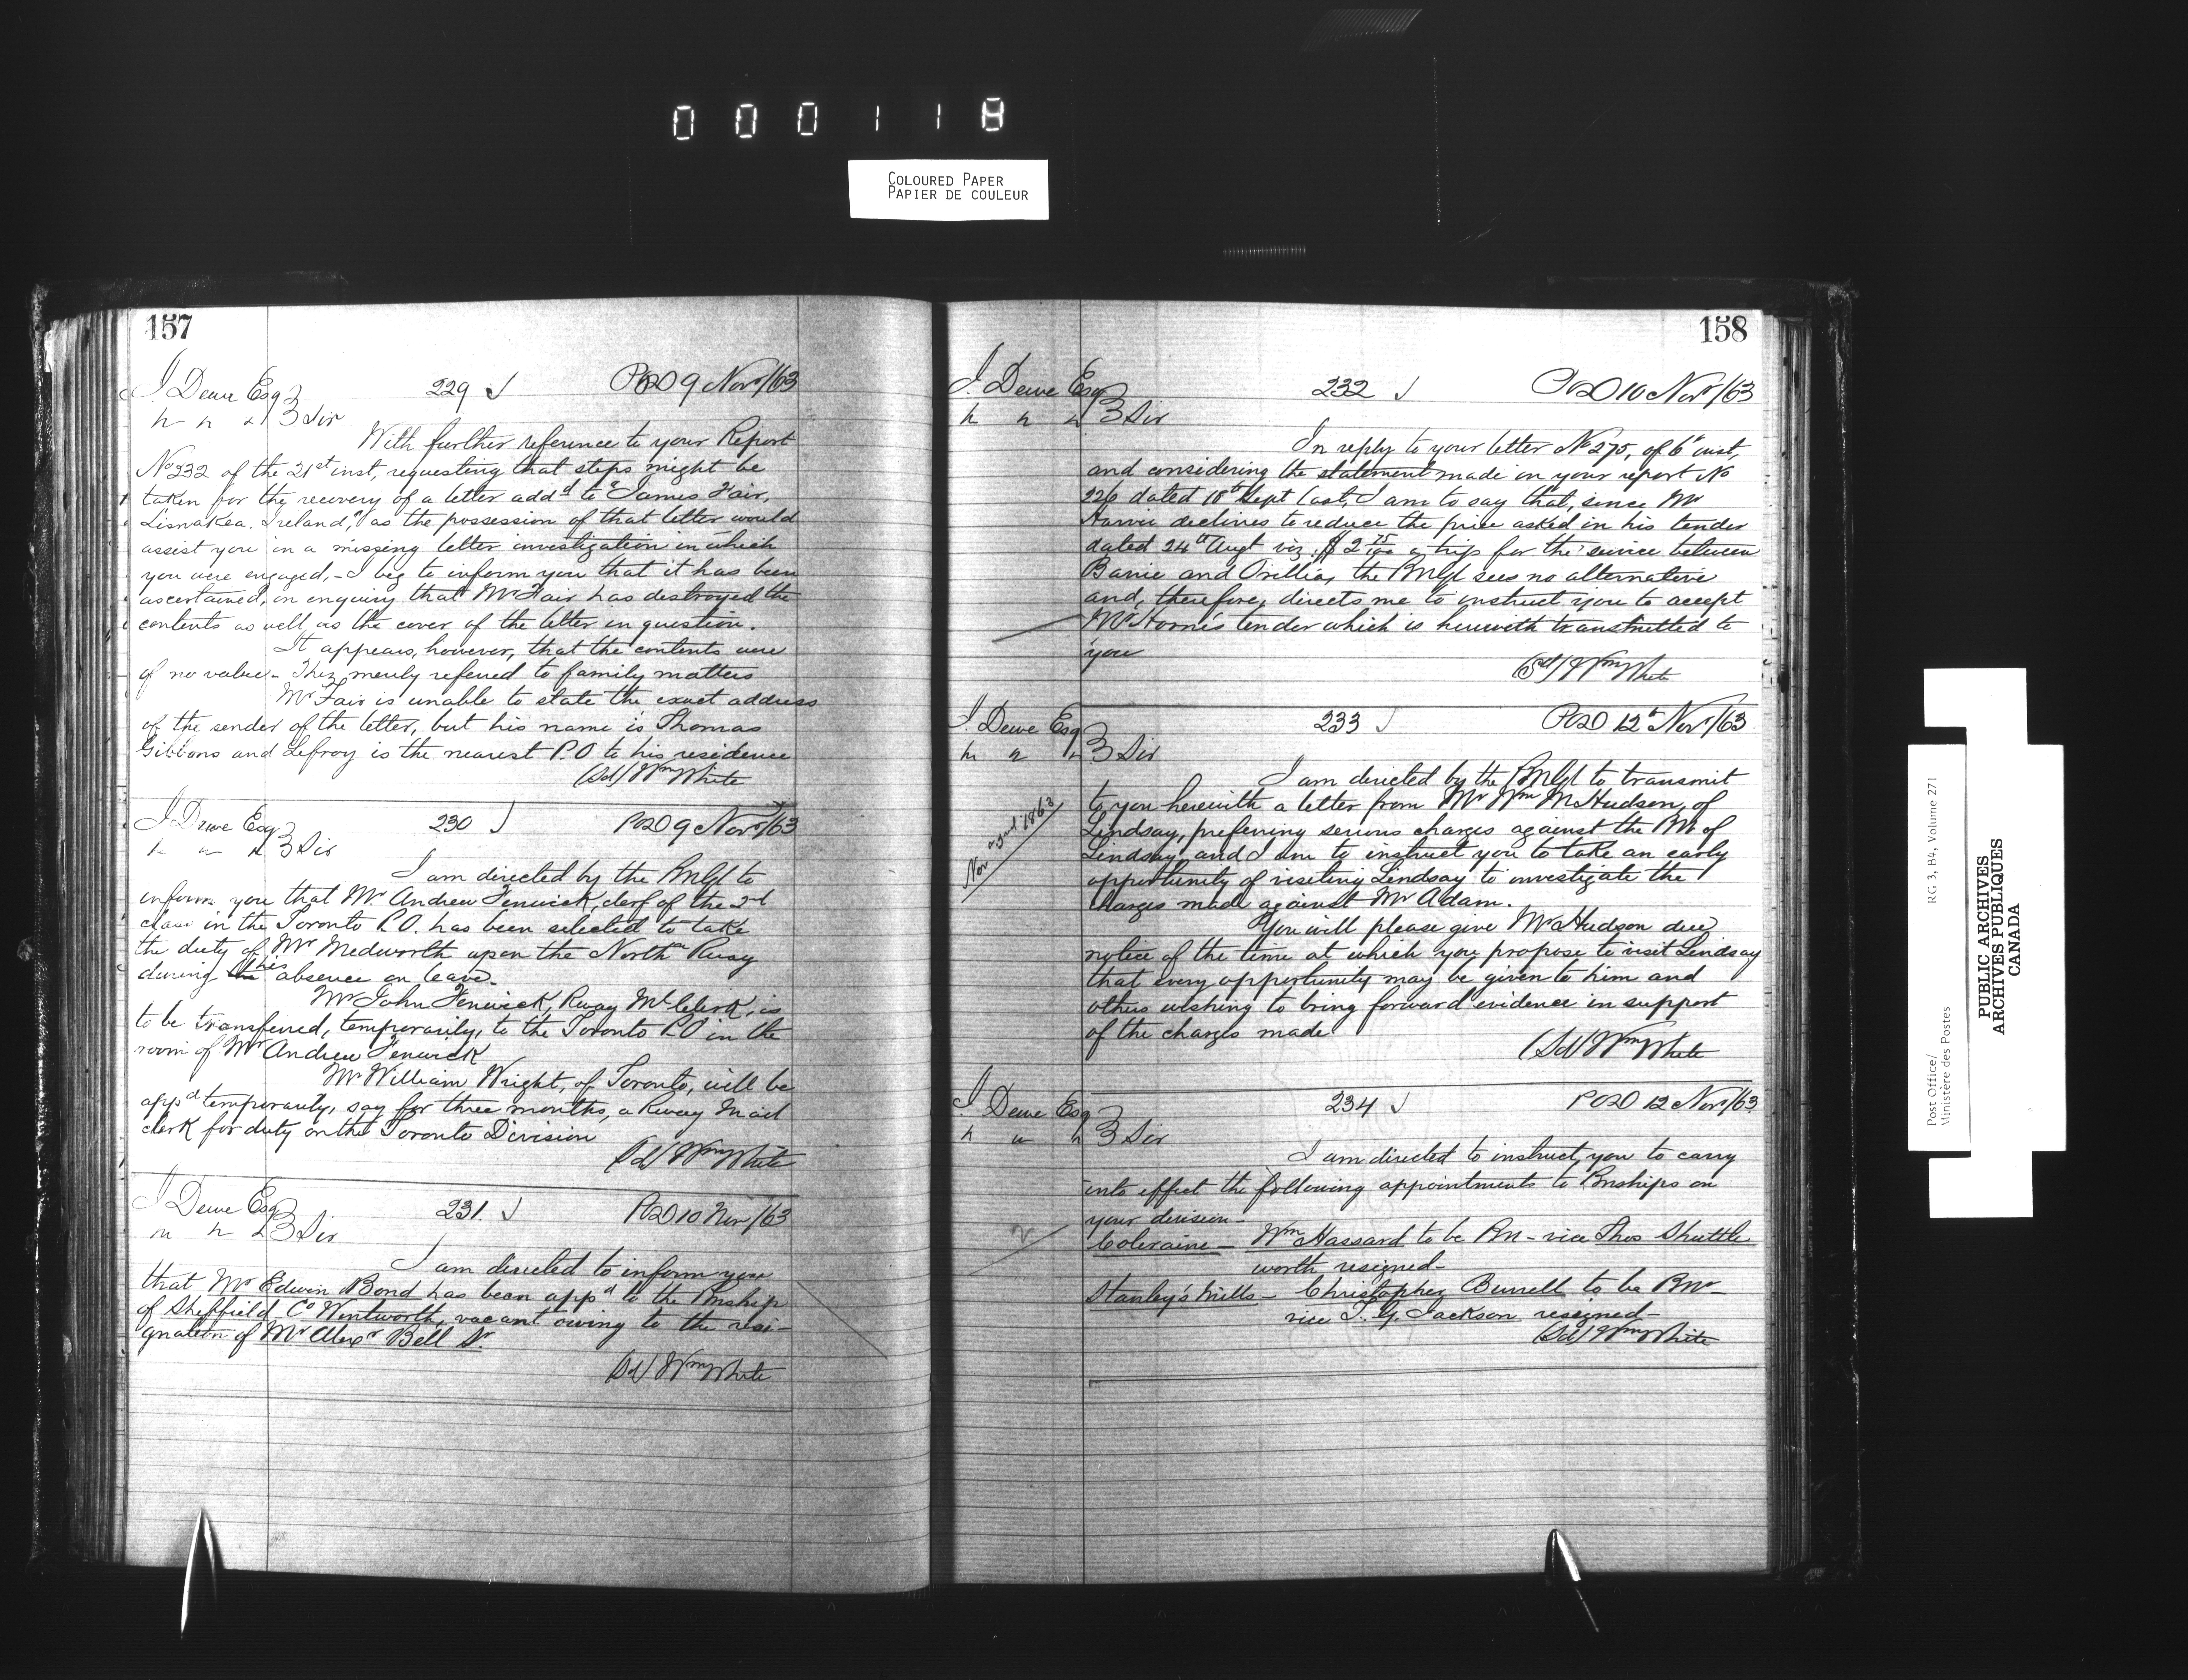 000118
COLOURED PAPER
PAPIER DE COULEUR
157
J. Dewe Esq 229 POD 9 Novr/63
Sir
With further reference to your Report
No 232 of the 21st inst, requesting that steps might be
taken for the recovery of a letter addd to "James Fair,
Lisnakea. Ireland," as the possession of that letter would
assist you in a missing letter investigation in which
you were engaged, - I beg to inform you that it has been
ascertained, on enquiry that Mr Fair has destroyed the
contents as well as the cover of the letter in question.
It appears, however, that the contents were
of no value - They merely referred to family matters
Mr Fair is unable to state the exact address
of the sender of the letter, but his name is Thomas
Gibbons and Lefroy is the nearest P.O to his residence
(Sd) Wm White
J. Dewe Esq 230 POD 9 Novr/63
Sir
I am directed by the PMGl to
inform you that Mr Andrew Fenwick, clerk of the 2d
class in the Toronto P.O. has been selected to take
the duty of Mr Medworth upon the Northn Rway
during the his absence on leave.
Mr John Fenwick, Rway Ml Clerk, is
to be transferred, temporarily, to the Toronto P.O in the
room of Mr Andrew Fenwick
Mr William Wright, of Toronto, will be
appd temporarily, say for three months, a Rway Mail
clerk for duty on the Toronto Division
(Sd) Wm White
J. Dewe Esq 231 POD 10 Nov/63
Sir
I am directed to inform you
that Mr Edwin Bond has been appd to the Pmship
of Sheffield Co Wentworth, vacant owing to the resi-
gnation of Mr Alexr Bell Sr.
(Sd) Wm White
158
J. Dewe Esq 232 POD 10 Novr/63
Sir
In reply to your letter No 275, of 6th inst,
and considering the statement made in your report No
226 dated 18th Sept last, I am to say that, since Mr
declines to reduce the price asked in his tender
dated 24th Augt viz. $2 75/100 a trip for the service between
Barrie and Orillia, the PMGl sees no alternative
and, therefore, directs me to instruct you to accept
tender which is herewith transmitted to
you
(Sd) Wm White
J. Dewe Esq 233 POD 12th Novr/63
Sir
I am directed by the PMGl to transmit
to you herewith a letter from Mr Wm M Hudson, of
Nov 3rd 1863
Lindsay, preferring serious charges against the PM of
Lindsay, and I am to instruct you to take an early
opportunity of visiting Lindsay to investigate the
charges made against Mr Adam.
You will please give Mr Hudson due
notice of the time at which you propose to visit Lindsay
that every opportunity may be given to him and
others wishing to bring forward evidence in support
of the charges made
(Sd) Wm White
J. Dewe Esq 234 POD 12 Novr/63
Sir
I am directed to instruct you to carry
into effect the following appointments to Pmships on
your division -
Coleraine - Wm Hassard to be Pm - vice Thos Shuttle
worth resigned -
Stanley's Mills - Christopher Burrell to be Pmr -
vice T. G. Jackson resigned -
(Sd) Wm White
Post Office/
Ministère des Postes
RG 3, B4, Volume 271
PUBLIC ARCHIVES
ARCHIVES PUBLIQUES
CANADA